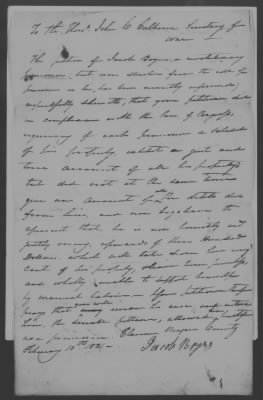 To the Honl. John C Calhoun Secretary of
War
The petition of Jacob Boyers, a revolutionary
but now stricken from the roll of
pensioners as he has been recently informed,
respectfully sheweth, that your petitioner did
in compliance with the law of Congress,
requiring of each pensioner a schedule
of his property, exhibit a just and
true account of all his property
but did not at the same time
give an account of the debts due
from him, and now begs leave to
represent that he is now honestly and
justly owing, upwards of three Hundred
Dollars, which will take from him every
cent of his property,
and wholly unable to support himself
by manual labour — your petitioner
pray that you will his case, and
him, the humble petitioner,
as a pensioner. County
February 10th 1824 Jacob Boyers